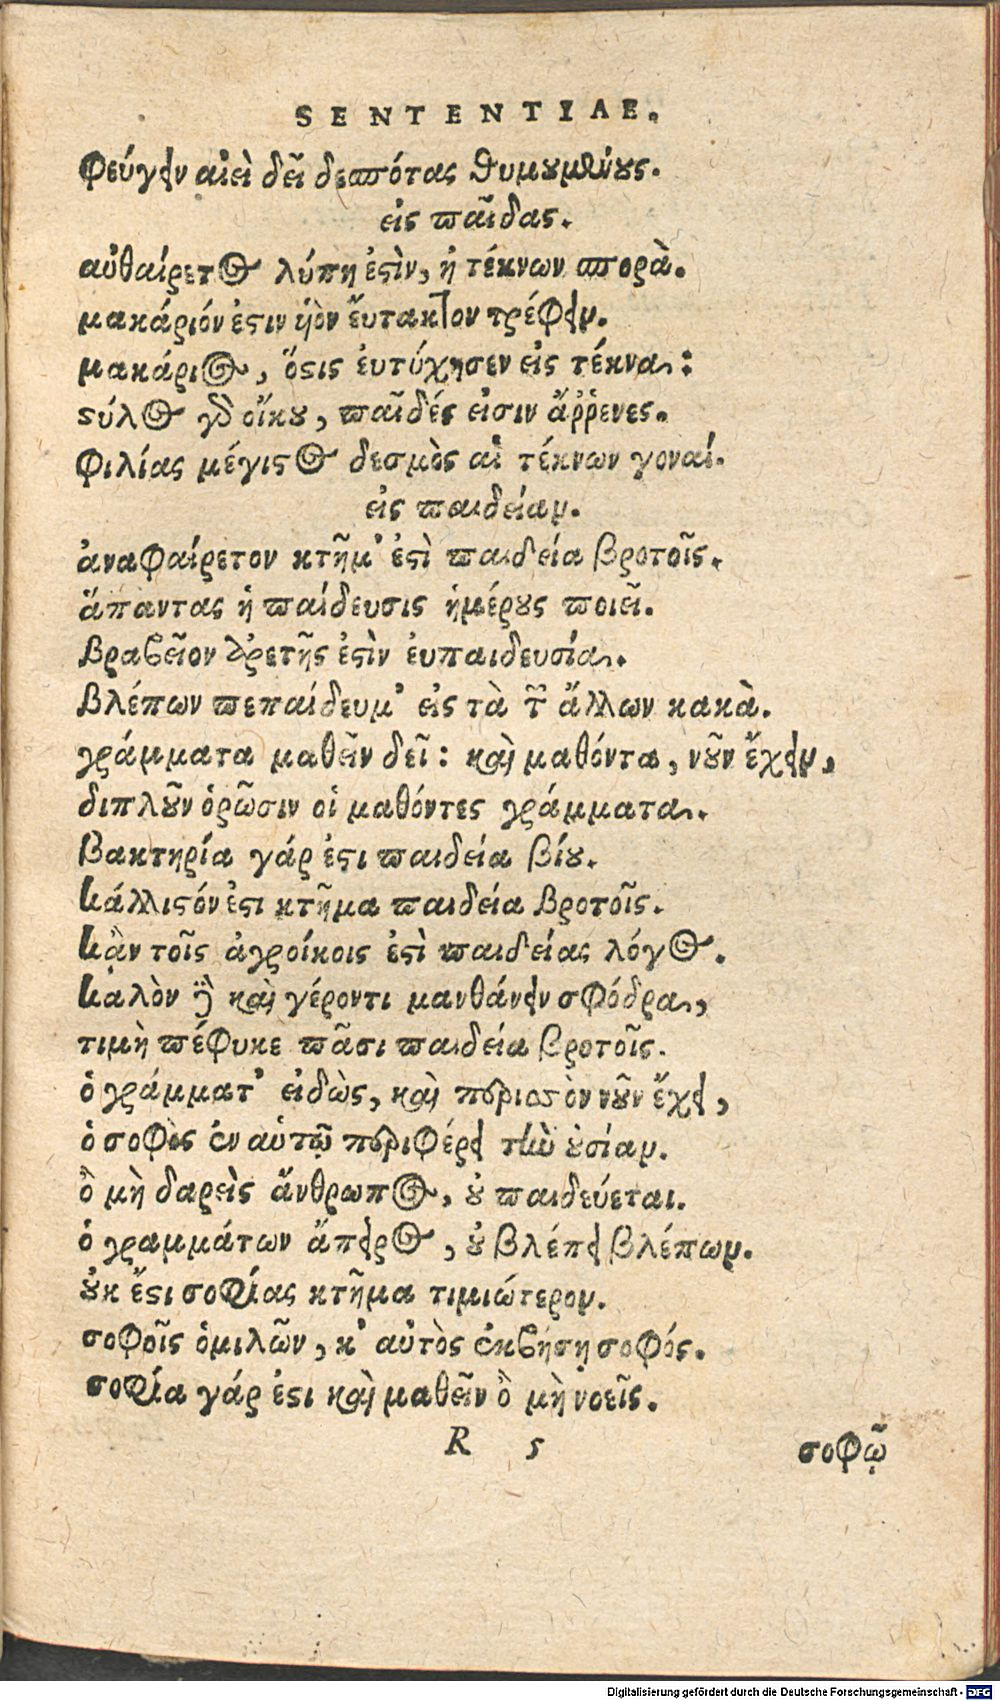 SENTENTIAE.
Φεύγειν αἰεὶ δεῖ δεσπότας θυμουμένους.
εἰς παῖδας.
αὐθαίρετος λύπη ἐστὶν, ἡ τέκνων σπορὰ.
μακάριόν ἐστιν ὑὸν ἔυτακτον τρέφειν.
μακάριος, ὅστις ἐυτύχησεν εἰς τέκνα:
στύλος γδ οἴκου, παῖδές εἰσιν ἄῤῥενες.
Φιλίας μέγιστος δεσμὸς αἱ τέκνων γοναί.
εἰς παιδείαν.
ἀναφαίρετον κτῆμ' ἐστὶ παιδεία βροτοῖς.
ἅπαντας ἡ παίδευσις ἡμέρους ποιεῖ.
βραβεῖον ἀρετῆς ἐστὶν ἐυπαιδευσία.
βλέπων πεπαίδευμ' εἰς τὰ τῶν ἄλλων κακὰ.
γράμματα μαθεῖν δεῖ: καὶ μαθόντα, νοῦν ἔχειν,
διπλοῦν ὁρῶσιν οἱ μαθόντες γράμματα.
Βακτηρία γάρ ἐστι παιδεία βίου.
κάλλιστόν ἐστι κτῆμα παιδεία βροτοῖς.
κᾂν τοῖς ἀγροίκοις ἐστὶ παιδείας λόγος.
καλὸν δὲ καὶ γέροντι μανθάνειν σφόδρα,
τιμὴ πέφυκε πᾶσι παιδεία βροτοῖς.
ὁ γράμματ' εἰδὼς, καὶ περισσὸν νοῦν ἔχει,
ὁ σοφὸς ἐν αὑτῷ περιφέρει τὴν οὐσίαν.
ὃ μὴ δαρεὶς ἄνθρωπος, οὐ παιδεύεται.
ὁ γραμμάτων ἄπειρος, οὐ βλέπει βλέπων.
οὐκ ἔστι σοφίας κτῆμα τιμιώτερον.
σοφοῖς ὁμιλῶν, κ' αὐτὸς ἐκβήσῃ σοφός.
σοφία γάρ ἐστι καὶ μαθεῖν ὃ μὴ νοεῖς.
R 5
σοφῷ
Digitalisierung gefördert durch die Deutsche Forschungsgemeinschaft - DFG